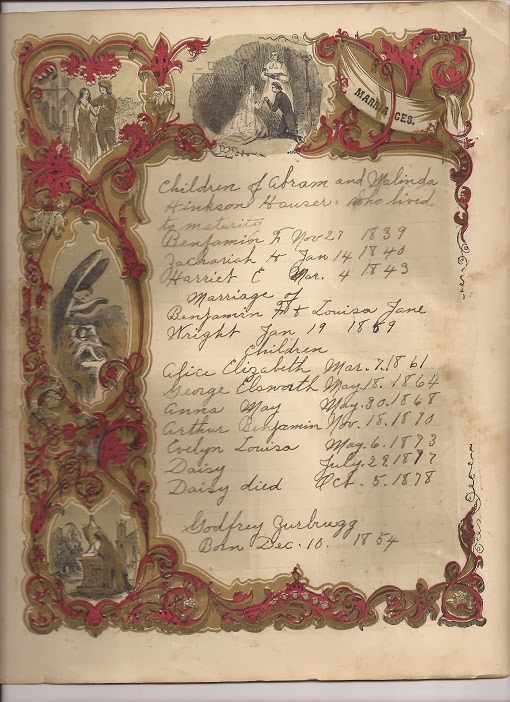 MARRIAGES.
Children of Abram and Malinda
Hinkson Hauser who lived
to maturity
Benjamin F Nov 27 1839
Zachariah H Jan 14 1840
Harriet E Mar. 4 1843
Marriage of
Benjamin F & Louisa Jane
Wright Jan 19 1859
Children
Alice Elizabeth Mar. 7. 1861
George Elsworth May. 18. 1864
Anna May May. 30. 1868
Arthur Benjamin Nov. 18. 1870
Evelyn Louisa May. 6. 1873
Daisy July. 29. 1877
Daisy died Oct. 5. 1878
Godfrey Zurbrugg
Born Dec. 10. 1854